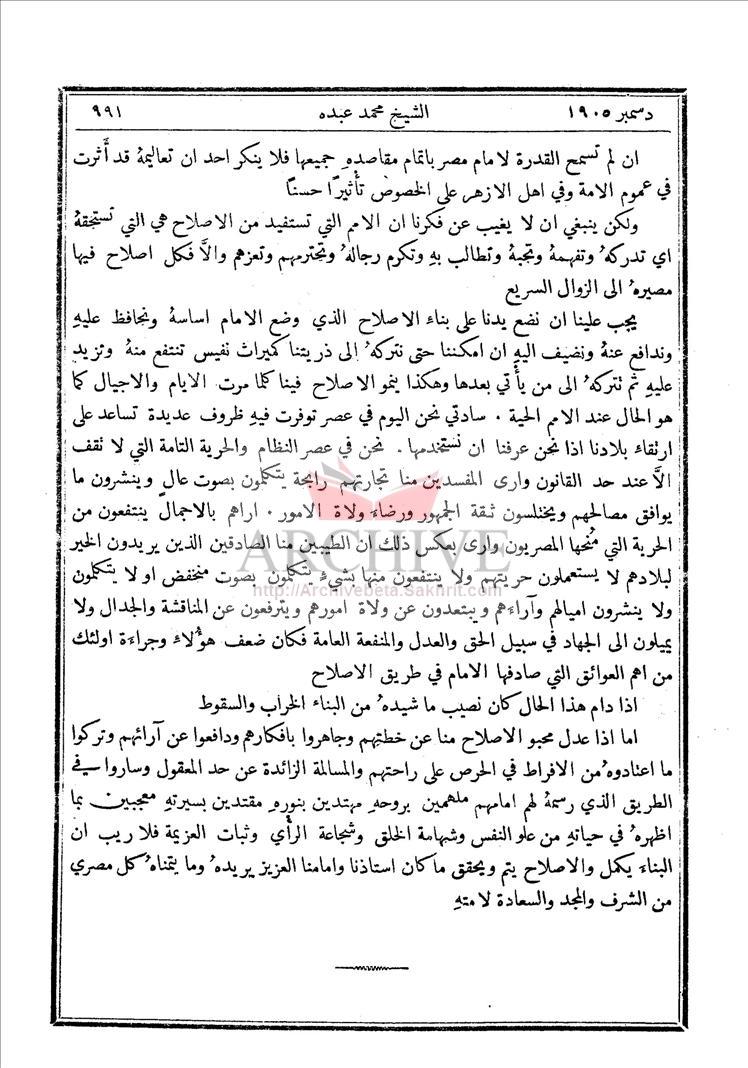 دسمبر ١٩٠٥ الشيخ محمد عبده ٩٩١
ان لم تسمح القدرة لامام مصر باتمام مقاصدهِ جميعها فلا ينكر احد ان تعاليمهُ قد أَثرت
في عموم الامة وفي اهل الازهر على الخصوص تأْثيرًا حسنًا
ولكن ينبغي ان لا يغيب عن فكرنا ان الامم التي تستفيد من الاصلاح هي التي تستحقهُ
اي تدركهُ وتفهمهُ وتحبهُ وتطالب بهِ وتكرم رجالهُ وتحترمهم وتعزهم والاَّ فكل اصلاح فيها
مصيرهُ الى الزوال السريع
يجب علينا ان نضع يدنا على بناء الاصلاح الذي وضع الامام اساسهُ ونحافظ عليهِ
وندافع عنهُ ونضيف اليهِ ان امكننا حتى نتركهُ الى ذريتنا كميراث نفيس تنتفع منهُ وتزيد
عليهِ ثم تتركهُ الى من يأْتي بعدها وهكذا ينمو الاصلاح فينا كلما مرت الايام والاجيال كما
هو الحال عند الامم الحية . سادتي نحن اليوم في عصر توفرت فيهِ ظروف عديدة تساعد على
ارتقاء بلادنا اذا نحن عرفنا ان نستخدمها . نحن في عصر النظام والحرية التامة التي لا تقف
الاَّ عند حد القانون وارى المفسدين منا تجارتهم رابحة يتكلمون بصوت عالٍ وينشرون ما
يوافق مصالحهم ويختلسون ثقة الجمهور ورضاء ولاة الامور . اراهم بالاجمال ينتفعون من
الحرية التي مُنحها المصريون وارى بعكس ذلك ان الطيبين منا الصادقين الذين يريدون الخير
لبلادهم لا يستعملون حريتهم ولا ينتفعون منها بشيءٍ يتكلمون بصوت منخفض او لا يتكلمون
ولا ينشرون اميالهم وآراءهم ويبتعدون عن ولاة امورهم ويترفعون عن المناقشة والجدال ولا
يميلون الى الجهاد في سبيل الحق والعدل والمنفعة العامة فكان ضعف هؤُلاء وجراءة اولئك
من اهم العوائق التي صادفها الامام في طريق الاصلاح
اذا دام هذا الحال كان نصيب ما شيدهُ من البناء الخراب والسقوط
اما اذا عدل محبو الاصلاح منا عن خطتهم وجاهروا بافكارهم ودافعوا عن آرائهم وتركوا
ما اعتادوهُ من الافراط في الحرص على راحتهم والمسالمة الزائدة عن حد المعقول وساروا في
الطريق الذي رسمهُ لهم امامهم ملهمين بروحهِ مهتدين بنورهِ مقتدين بسيرتهِ معجبين بما
اظهرهُ في حياتهِ من علو النفس وشهامة الخلق وشجاعة الرأْي وثبات العزيمة فلا ريب ان
البناء يكمل والاصلاح يتم ويحقق ما كان استاذنا وامامنا العزيز يريدهُ وما يتمناهُ كل مصري
من الشرف والمجد والسعادة لامتهِ
ARCHIVE
http://Archivebeta.Sakhrit.com